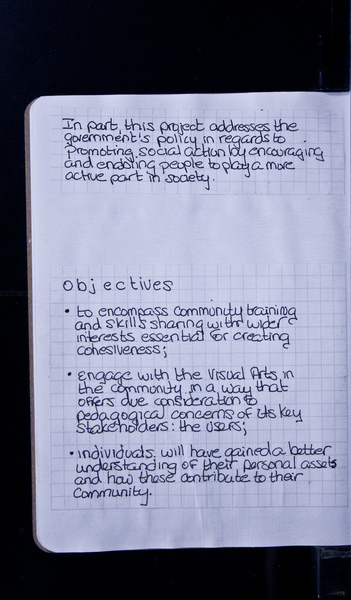 In part, this project addresses the
government's policy in regards to
promoting social action by encouraging
and enabling people to play a more
active part in society.
objectives
• to encompass community training
and skills sharing with wider
interests essential for creating
cohesiveness;
• engage with the Visual Arts in
the community in a way that
offers due consideration to
pedagogical concerns of its key
stakeholders: the users;
• individuals will have gained a better
understanding of their personal assets
and how these contribute to their
community.